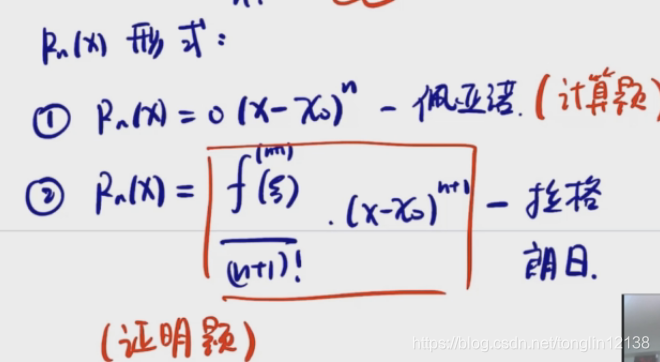 Rₙ(x) 形式:
① Rₙ(x) = o (x-x₀)ⁿ - 佩亚诺. (计算题)
② Rₙ(x) = f⁽ⁿ⁺¹⁾(ξ) / (n+1)! · (x-x₀)ⁿ⁺¹ - 拉格
朗日.
(证明题)
https://blog.csdn.net/tonglin12138